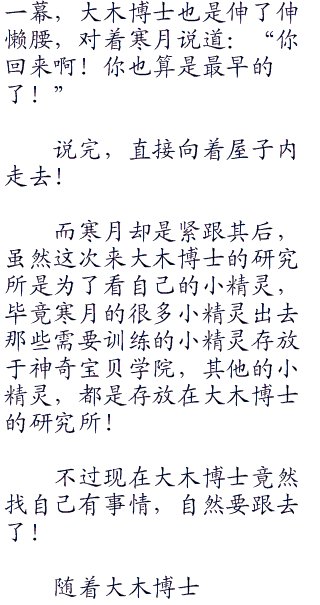 一幕，大木博士也是伸了伸
懒腰，对着寒月说道：“你
回来啊！你也算是最早的
了！”
说完，直接向着屋子内
走去！
而寒月却是紧跟其后，
虽然这次来大木博士的研究
所是为了看自己的小精灵，
毕竟寒月的很多小精灵出去
那些需要训练的小精灵存放
于神奇宝贝学院，其他的小
精灵，都是存放在大木博士
的研究所！
不过现在大木博士竟然
找自己有事情，自然要跟去
了！
随着大木博士